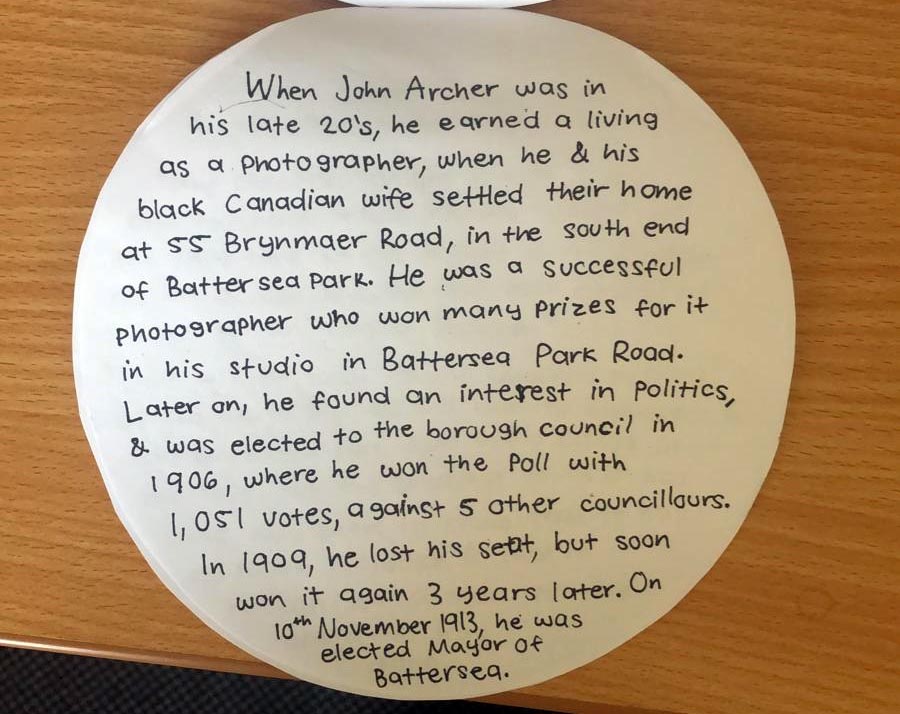 When John Archer was in
his late 20's, he earned a living
as a photographer, when he & his
black Canadian wife settled their home
at 55 Brynmaer Road, in the south end
of Battersea Park. He was a successful
photographer who won many prizes for it
in his studio in Battersea Park Road.
Later on, he found an interest in politics,
& was elected to the borough council in
1906, where he won the poll with
1,051 votes, against 5 other councillours.
In 1909, he lost his seat, but soon
won it again 3 years later. On
10th November 1913, he was
elected Mayor of
Battersea.